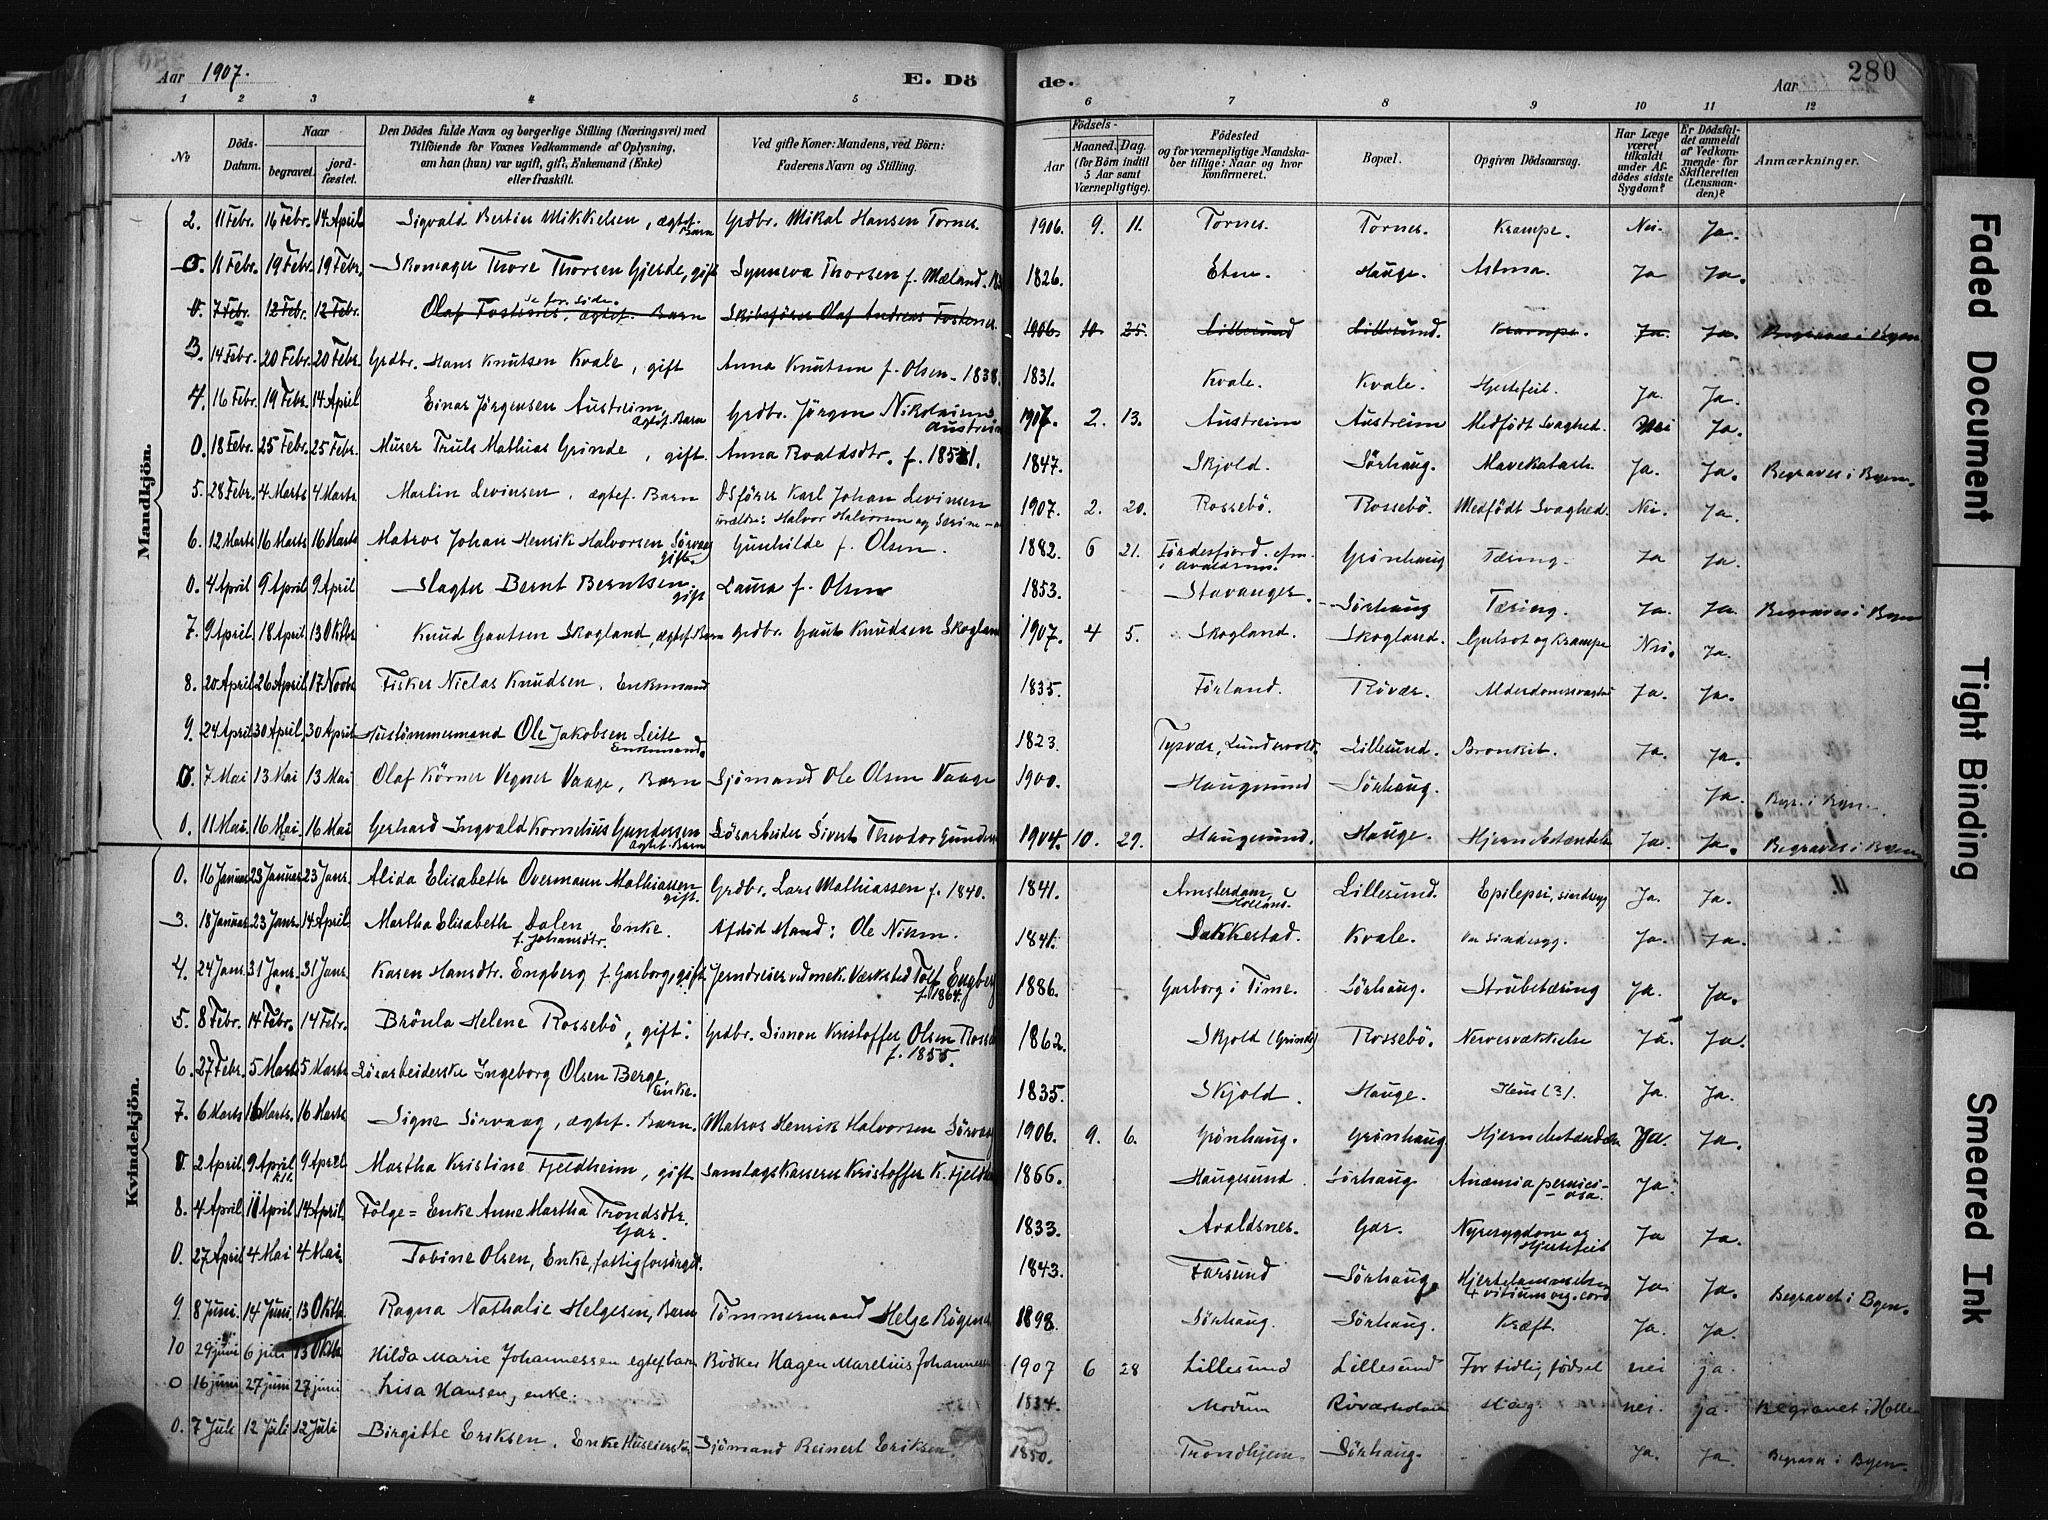 Aar 1907. E. Dö de. Aar 280
1 2 3 4 5 6 7 8 9 10 11 12
№ Döds-Datum. Naar begravet. jordfæstet. Den Dödes fulde Navn og borgerlige Stilling (Næringsvei) med Tilföiende for Voxnes Vedkommende af Oplysning, om han (hun) var ugift, gift, Enkemand (Enke) eller fraskilt. Ved gifte Koner: Mandens, ved Börn: Faderens Navn og Stilling. Födsels- Aar Maaned. Dag. (for Börn indtil 5 Aar samt Værnepligtige). Födested og for værnepligtige Mandskaber tillige: Naar og hvor konfirmeret. Bopæl. Opgiven Dödsaarsag. Har Læge været tilkaldt under Afdödes sidste Sygdom? Er Dödsfaldet anmeldt af Vedkommende for Skifteretten (Lensmanden)? Anmærkninger.
Mandkjön.
2. 11 Febr. 16 Febr. 14 April Sigvald Bertin Mikkelsen, ægtef. Barn Grdbr. Mikal Hansen Tornes. 1906. 9. 11. Tornes. Tornes. Krampe. Nei. Ja.
0. 11 Febr. 19 Febr. 19 Febr. Skomager Thore Thorsen Gjerde, gift Synneva Thorsen f. Mæland. 1826. Etne. Hauge. Astma. Ja Ja.
0. 7 Febr. 12 Febr. 12 Febr. se for. side. Olaf Tostenes, ægtef. Barn Skibsfører Olaf Andreas Tostenes 1906. 10. 25. Lillesund Lillesund. Krampe. Ja. Ja. Begravet i Byen
3. 14 Febr. 20 Febr. 20 Febr. Grdbr. Hans Knutsen Kvale, gift Anna Knutsen f. Olsen. 1838. 1831. Kvale. Kvale. Hjertefeil. Ja. Ja.
4. 16 Febr. 19 Febr. 14 April Einar Jörgensen Austreim, Ægtef. Barn Grdbr. Jörgen Nikolaisen Austreim 1907. 2. 13. Austreim Austreim Medfödt Svaghed. Nei Ja.
0. 18 Febr. 25 Febr. 25 Febr. Murer Truls Mathias Grinde, gift. Anna Roaldsdtr. f. 1851. 1847. Skjold. Sörhaug. Mavekatarh. Ja. Ja. Begravet i Byen.
5. 28 Febr. 4 Marts 4 Marts Martin Levinsen, ægtef. Barn DSförer Karl Johan Levinsen 1907. 2. 20. Rossebö. Rossebö. Medfödt Svaghed. Nei. Ja.
6. 12 Marts 16 Marts 16 Marts Matros Johan Henrik Halvorsen Sörvaag gift. Forældre: Halvor Halvorsen og Serine Gunhilde f. Olsen. 1882. 6 21. Førdesfjord. cfm. i Avaldsnes. Grønhaug Tæring. Ja Ja.
0. 4 April 9 April 9 April Slagter Bernt Berntsen. gift Laura f. Olsen 1853. Stavanger. Sörhaug Tæring. Ja. Ja. Begravet i Byen
7. 9 April 18 April 13 Oktbr Knud Gautsen Skogland, ægtef. Barn Grdbr. Gaute Knudsen Skogland 1907. 4 5. Skogland. Skogland. Gulsot og Krampe Nei. Ja.
8. 20 April 26 April 17 Novbr Fisker Niclas Knudsen. Enkemand 1835. Förland. Rövær. Alderdomssvaghed Ja. Ja.
9. 24 April 30 April. 30 April Hustömmermand Ole Jakobsen Leite Enkemand. 1823. Tysvær, Lillesund. Bronkit. Ja. Ja.
0. 7 Mai 13 Mai 13 Mai Olaf Körner Vegner Vaage, Barn Sjömand Ole Olsen Vaage 1900. Haugesund Sörhaug. Ja. Begr. i Byen.
0. 11 Mai. 16 Mai. 16 Mai Gerhard Ingvald Kornelius Gundersen ægtef. Barn Lösarbeider Sivert Theodor Gundersen 1904. 10. 29. Haugesund. Hauge. Hjernebetændelse Ja. Ja. Begravet i Byen
Kvindekjön.
0. 16 Januar 23 Januar 23 Janr. Alida Elisabeth Overmann Mathiassen gift. Grdbr. Lars Mathiassen f. 1840. 1841. Amsterdam Holland. Lillesund. Epilepsi, sindssyg Ja. Ja.
3. 18 Januar 23 Janr. 14 April. Martha Elisabeth Dalen f. Johansdtr. Enke. Afdöd Mand: Ole Nilsen. 1841. Sakkestad. Kvale. Var Sindssyg. Ja. Ja.
4. 24 Janr. 31 Janr. 31 Janr. Karen Hansdtr. Engberg f. Garborg, gift Jerndreier ved mek. Værksted Tolf Engberg f. 1864. 1886. Garborg i Time. Sörhaug. Strubetæring Ja. Ja.
5. 8 Febr. 14 Febr. 14 Febr. Brönla Helene Rossebö, gift. Grdbr. Simon Kristoffer Olsen Rossebö f. 1855. 1862. Skjold (Grinde) Rossebö. Nervesvækkelse Ja. Ja.
6. 27 Febr. 5 Marts 5 Marts Lösarbeiderske Ingeborg Olsen Berge, Enke. 1835. Skjold. Hauge. Ileus (?). Ja. Ja.
7. 6 Marts 16 Marts. 16 Marts Signe Sörvaag, ægtef. Barn. Matros Henrik Halvorsen Sörvaag 1906. 9. 6. Grönhaug. Grönhaug Hjernebetændelse Ja. Ja.
0. 2 April 9 April 9 April Martha Kristine Fjeldheim, gift Samlagskasserer Kristoffer K. Fjeldheim 1866. Haugesund. Sörhaug Anæmia perniciosa. Ja.
8. 4 April 11 April 14 April. Fölge=Enke Anne Martha Trondsdtr. Gar. 1833. Avaldsnes. Gar. Nyresygdom og Hjertefeil Ja Ja.
0. 27 April 4 Mai 4 Mai. Tobine Olsen, Enke, fattigforsørget. 1843. Farsund Sörhaug. Hjertelammelse vitium org. cord Ja. Ja. Begravet i Byen.
9. 8 Juni. 14 Juni. 13 Oktbr. Ragna Nathalie Helgesen, Barn Tömmermand Helge Bögenes 1898. Sörhaug. Sörhaug. Kræft. Ja. Ja.
10 29 juni 6 juli 13 Oktbr. Hilda Marie Johannessen egtef barn Bödker Hagen Marelius Johannessen 1907 6 28 Lillesund Lillesund For tidlig födsel nei ja.
0 16 juni 27 juni 27 juni Lisa Hansen, enke. 1834. Modum Röværholmen Slag nei. ja.
0. 7 Juli 12 Juli 12 Juli Birgitte Eriksen. Enke Sjömand Reinert Eriksen. 1850. Trondhjem. Sörhaug. Ja. Ja. Begravet i Byen.
Faded Document
Tight Binding
Smeared Ink